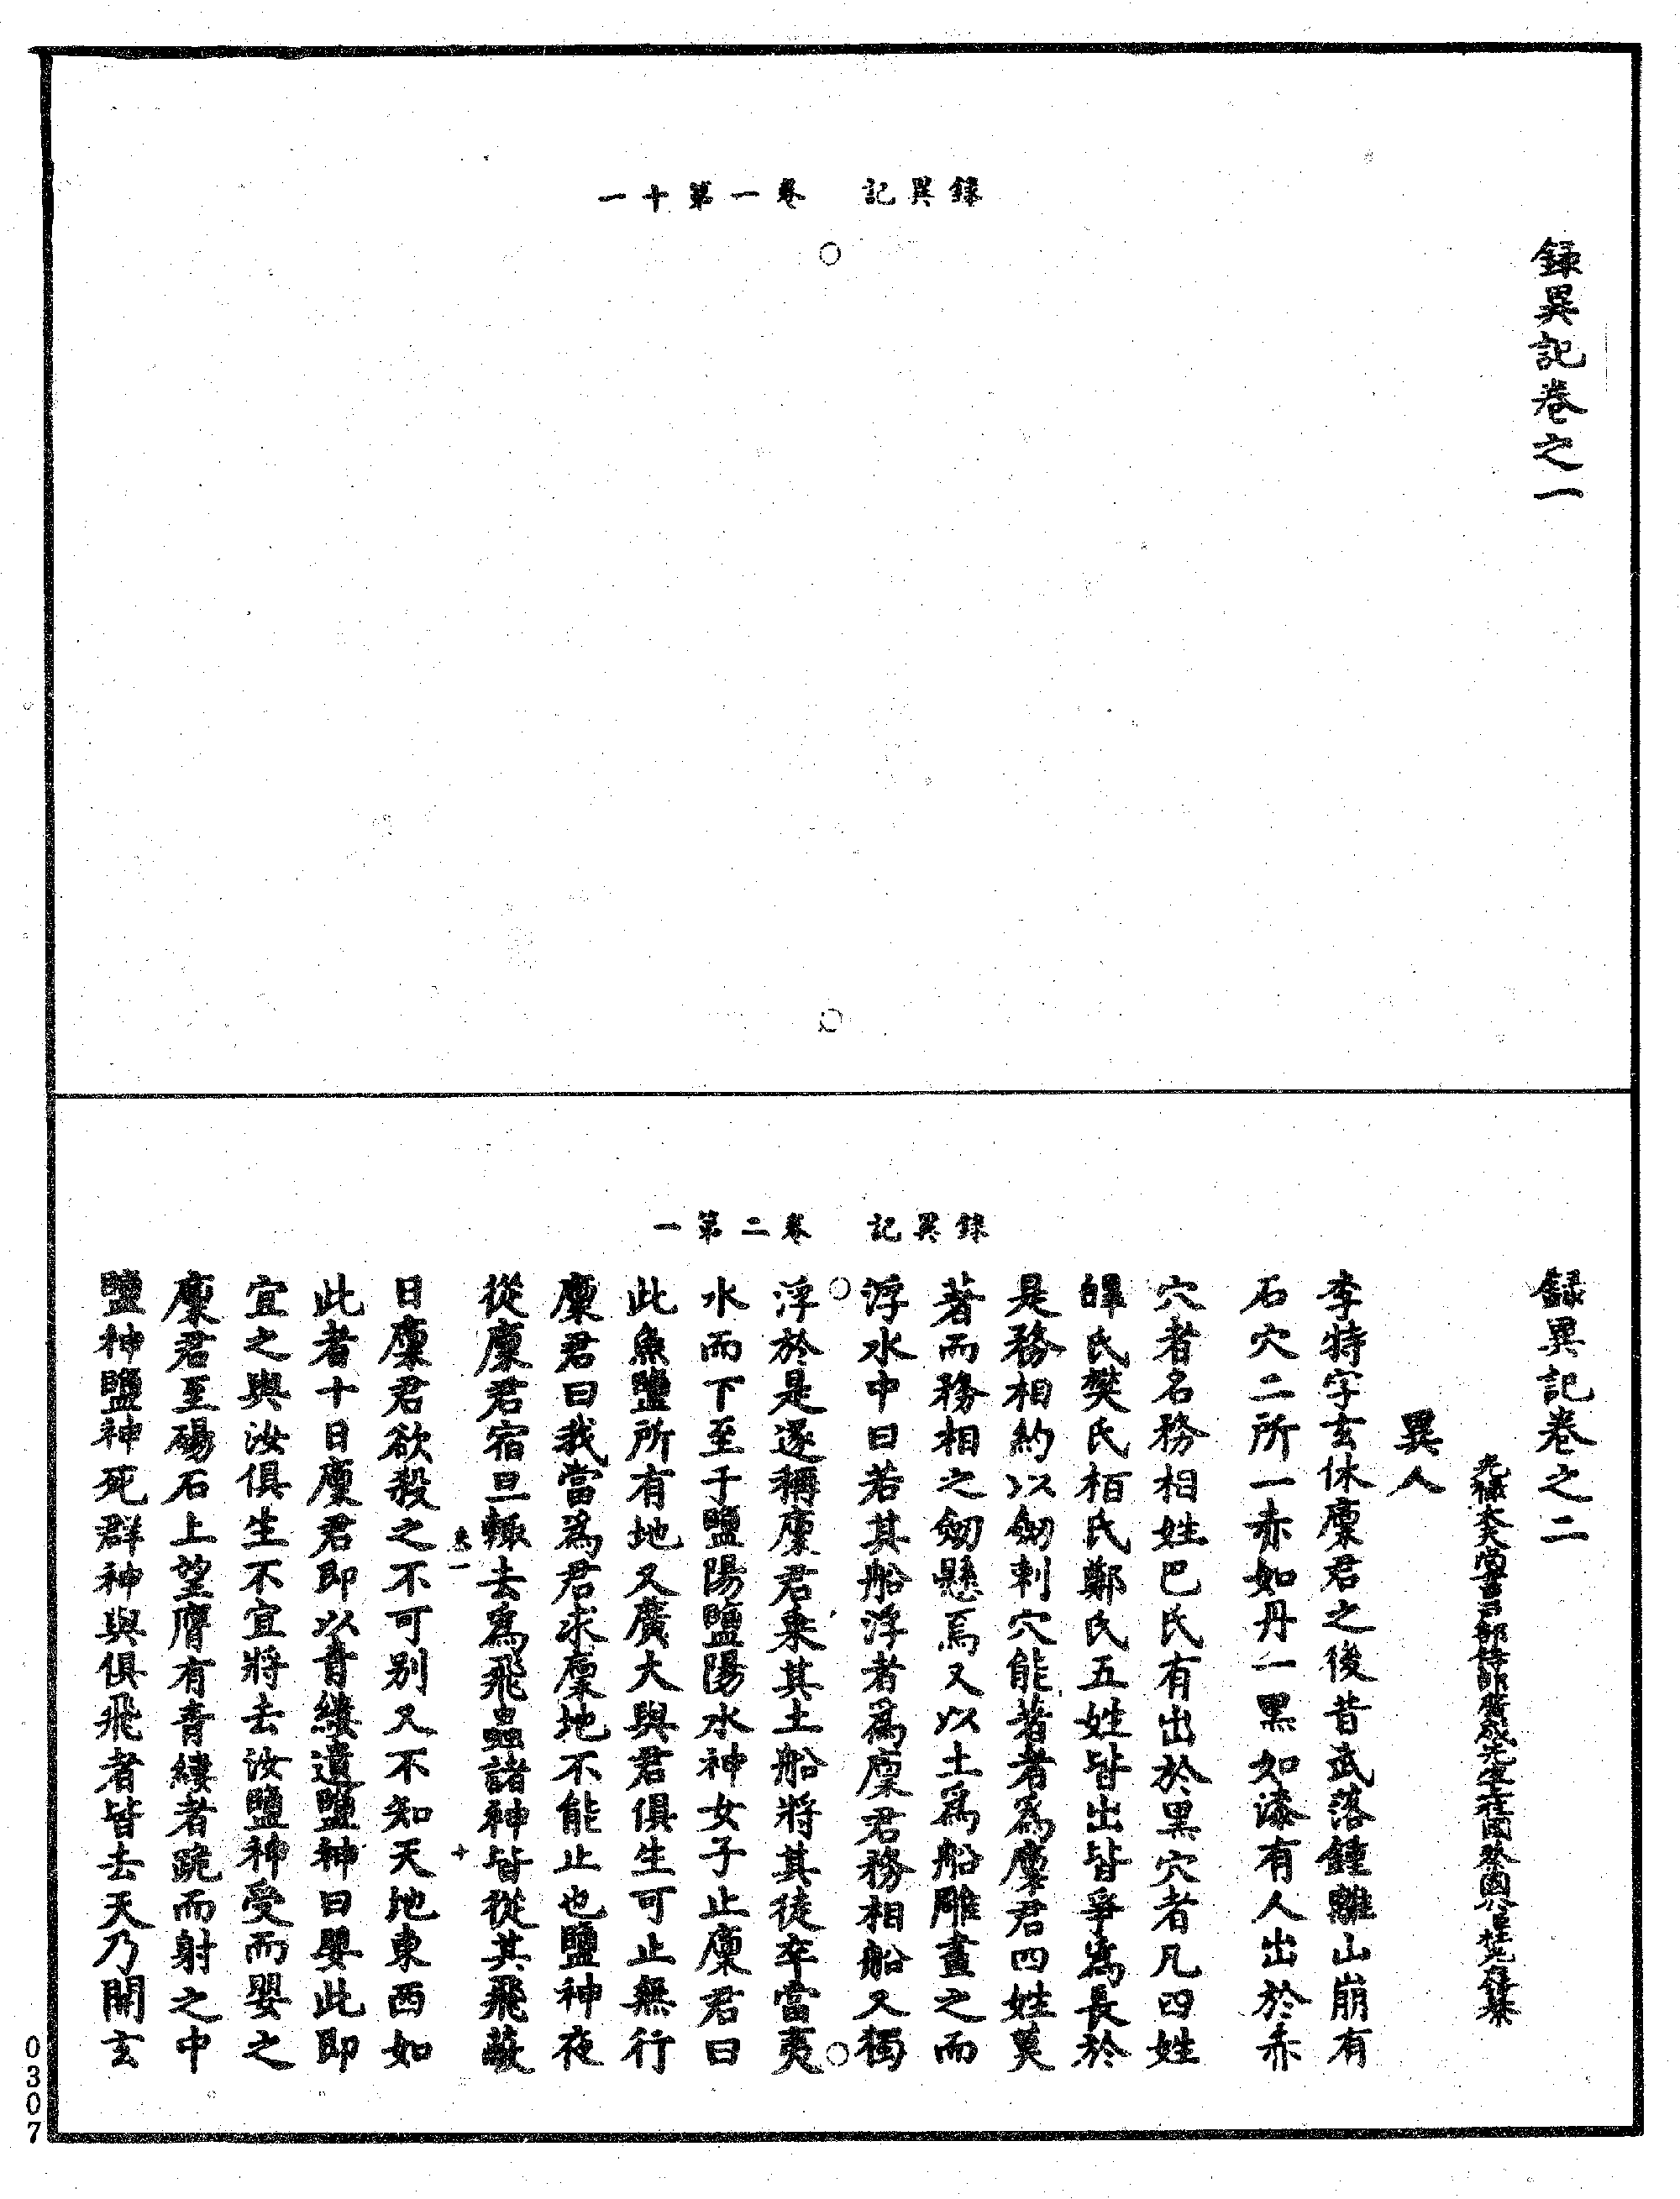 錄異記　卷一第十一
錄異記卷之一
錄異記　卷二第一
錄異記卷之二
光祿大夫尚書戶部侍郎廣成先生上柱國蔡國公杜光庭集
異人
李特字玄休廩君之後昔武落鍾離山崩有
石穴二所一赤如丹一黑如漆有人出於赤
穴者名務相姓巴氏有出於黑穴者凡四姓
㬦氏樊氏栢氏鄭氏五姓皆出皆爭爲長於
是務相約以劒刺穴能著者爲廩君四姓莫
著而務相之劒懸焉又以土爲船雕畫之而
浮水中曰若其船浮者爲廩君務相船又獨
浮於是遂稱廩君乘其土船將其徒卒當夷
水而下至于鹽陽鹽陽水神女子止廩君曰
此魚鹽所有地又廣大與君俱生可止無行
廩君曰我當爲君求廩地不能止也鹽神夜
從廩君宿旦輒去爲飛蟲諸神皆從其飛蔽
卷一　十
日廩君欲殺之不可别又不知天地東西如
此者十日廩君即以青縷遺鹽神曰嬰此即
宜之與汝俱生不宜將去汝鹽神受而嬰之
廩君至碭石上望膺有青縷者跪而射之中
鹽神鹽神死群神與俱飛者皆去天乃開玄
0307